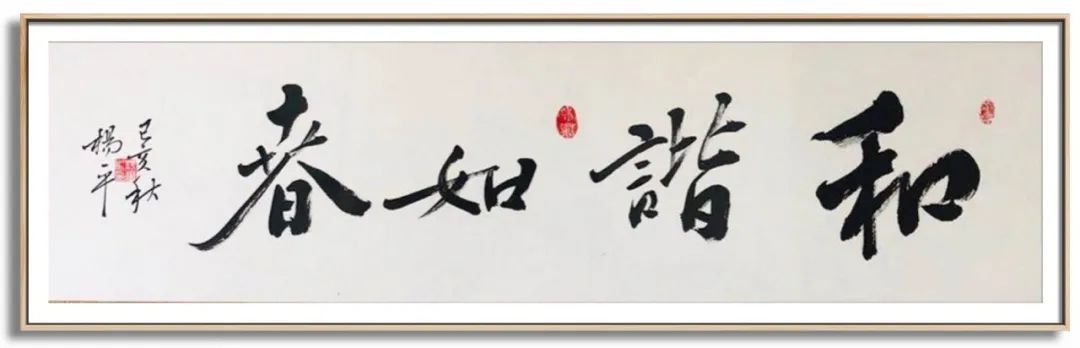 和諧如春
己亥秋
楊平